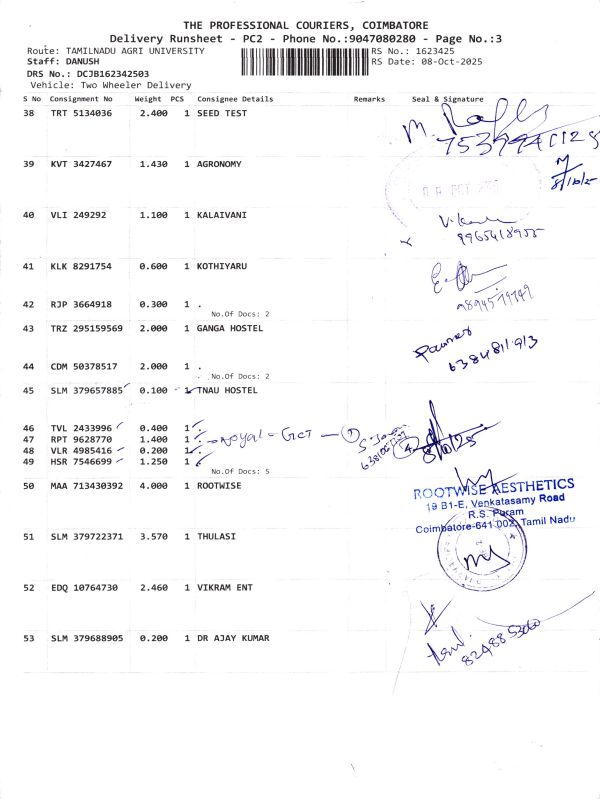 THE PROFESSIONAL COURIERS, COIMBATORE
Delivery Runsheet - PC2 - Phone No.:9047080280 - Page No.:3
Route: TAMILNADU AGRI UNIVERSITY RS No.: 1623425
Staff: DANUSH RS Date: 08-Oct-2025
DRS No.: DCJB162342503
Vehicle: Two Wheeler Delivery
S No Consignment No Weight PCS Consignee Details Remarks Seal & Signature
38 TRT 5134036 2.400 1 SEED TEST
39 KVT 3427467 1.430 1 AGRONOMY
8/10/25
40 VLI 249292 1.100 1 KALAIVANI
41 KLK 8291754 0.600 1 KOTHIYARU
42 RJP 3664918 0.300 1 .
No.Of Docs: 2
43 TRZ 295159569 2.000 1 GANGA HOSTEL
6384811913
44 CDM 50378517 2.000 1 .
No.Of Docs: 2
45 SLM 379657885 0.100 1 TNAU HOSTEL
46 TVL 2433996 0.400 1 .
47 RPT 9628770 1.400 1 .
48 VLR 4985416 0.200 1 .
49 HSR 7546699 1.250 1 .
No.Of Docs: 5
50 MAA 713430392 4.000 1 ROOTWISE
ROOTWISE AESTHETICS
19 B1-E, Venkatasamy Road
R.S. Puram
Coimbatore-641 002, Tamil Nadu
51 SLM 379722371 3.570 1 THULASI
52 EDQ 10764730 2.460 1 VIKRAM ENT
53 SLM 379688905 0.200 1 DR AJAY KUMAR